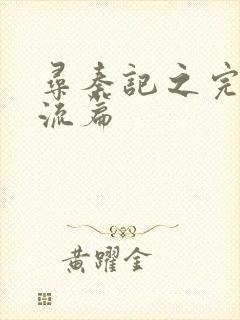 尋秦記之完
流篇
黄躍金